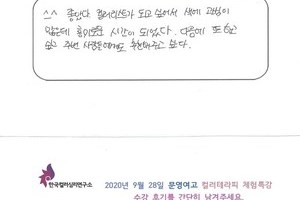 ^^ 좋았다. 컬러리스트가 되고 싶어서 색에 관심이
있는데 흥미로운 시간이 되었다. 다음에 또 하고
싶고 주변 사람들에게도 추천해주고 싶다.
한국컬러심리연구소
2020년 9월 28일 문영여고 컬러테라피 체험특강
수강 후기를 간단히 남겨주세요.